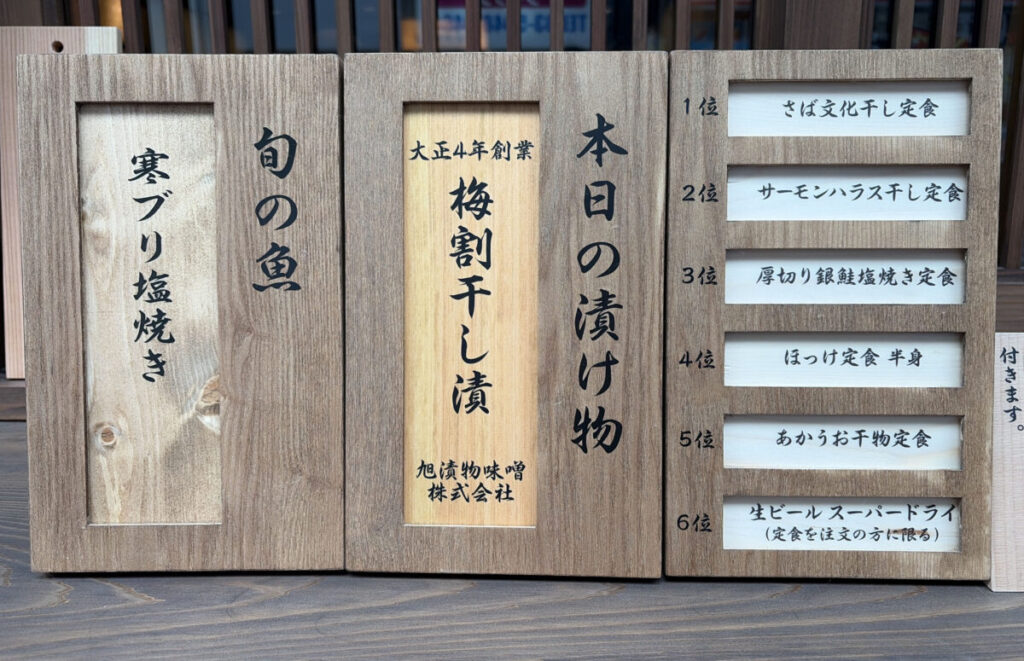 旬の魚
寒ブリ塩焼き
本日の漬け物
大正4年創業
梅割干し漬
旭漬物味噌
株式会社
1位 さば文化干し定食
2位 サーモンハラス干し定食
3位 厚切り銀鮭塩焼き定食
4位 ほっけ定食 半身
5位 あかうお干物定食
6位 生ビール スーパードライ
(定食を注文の方に限る)
付きます。